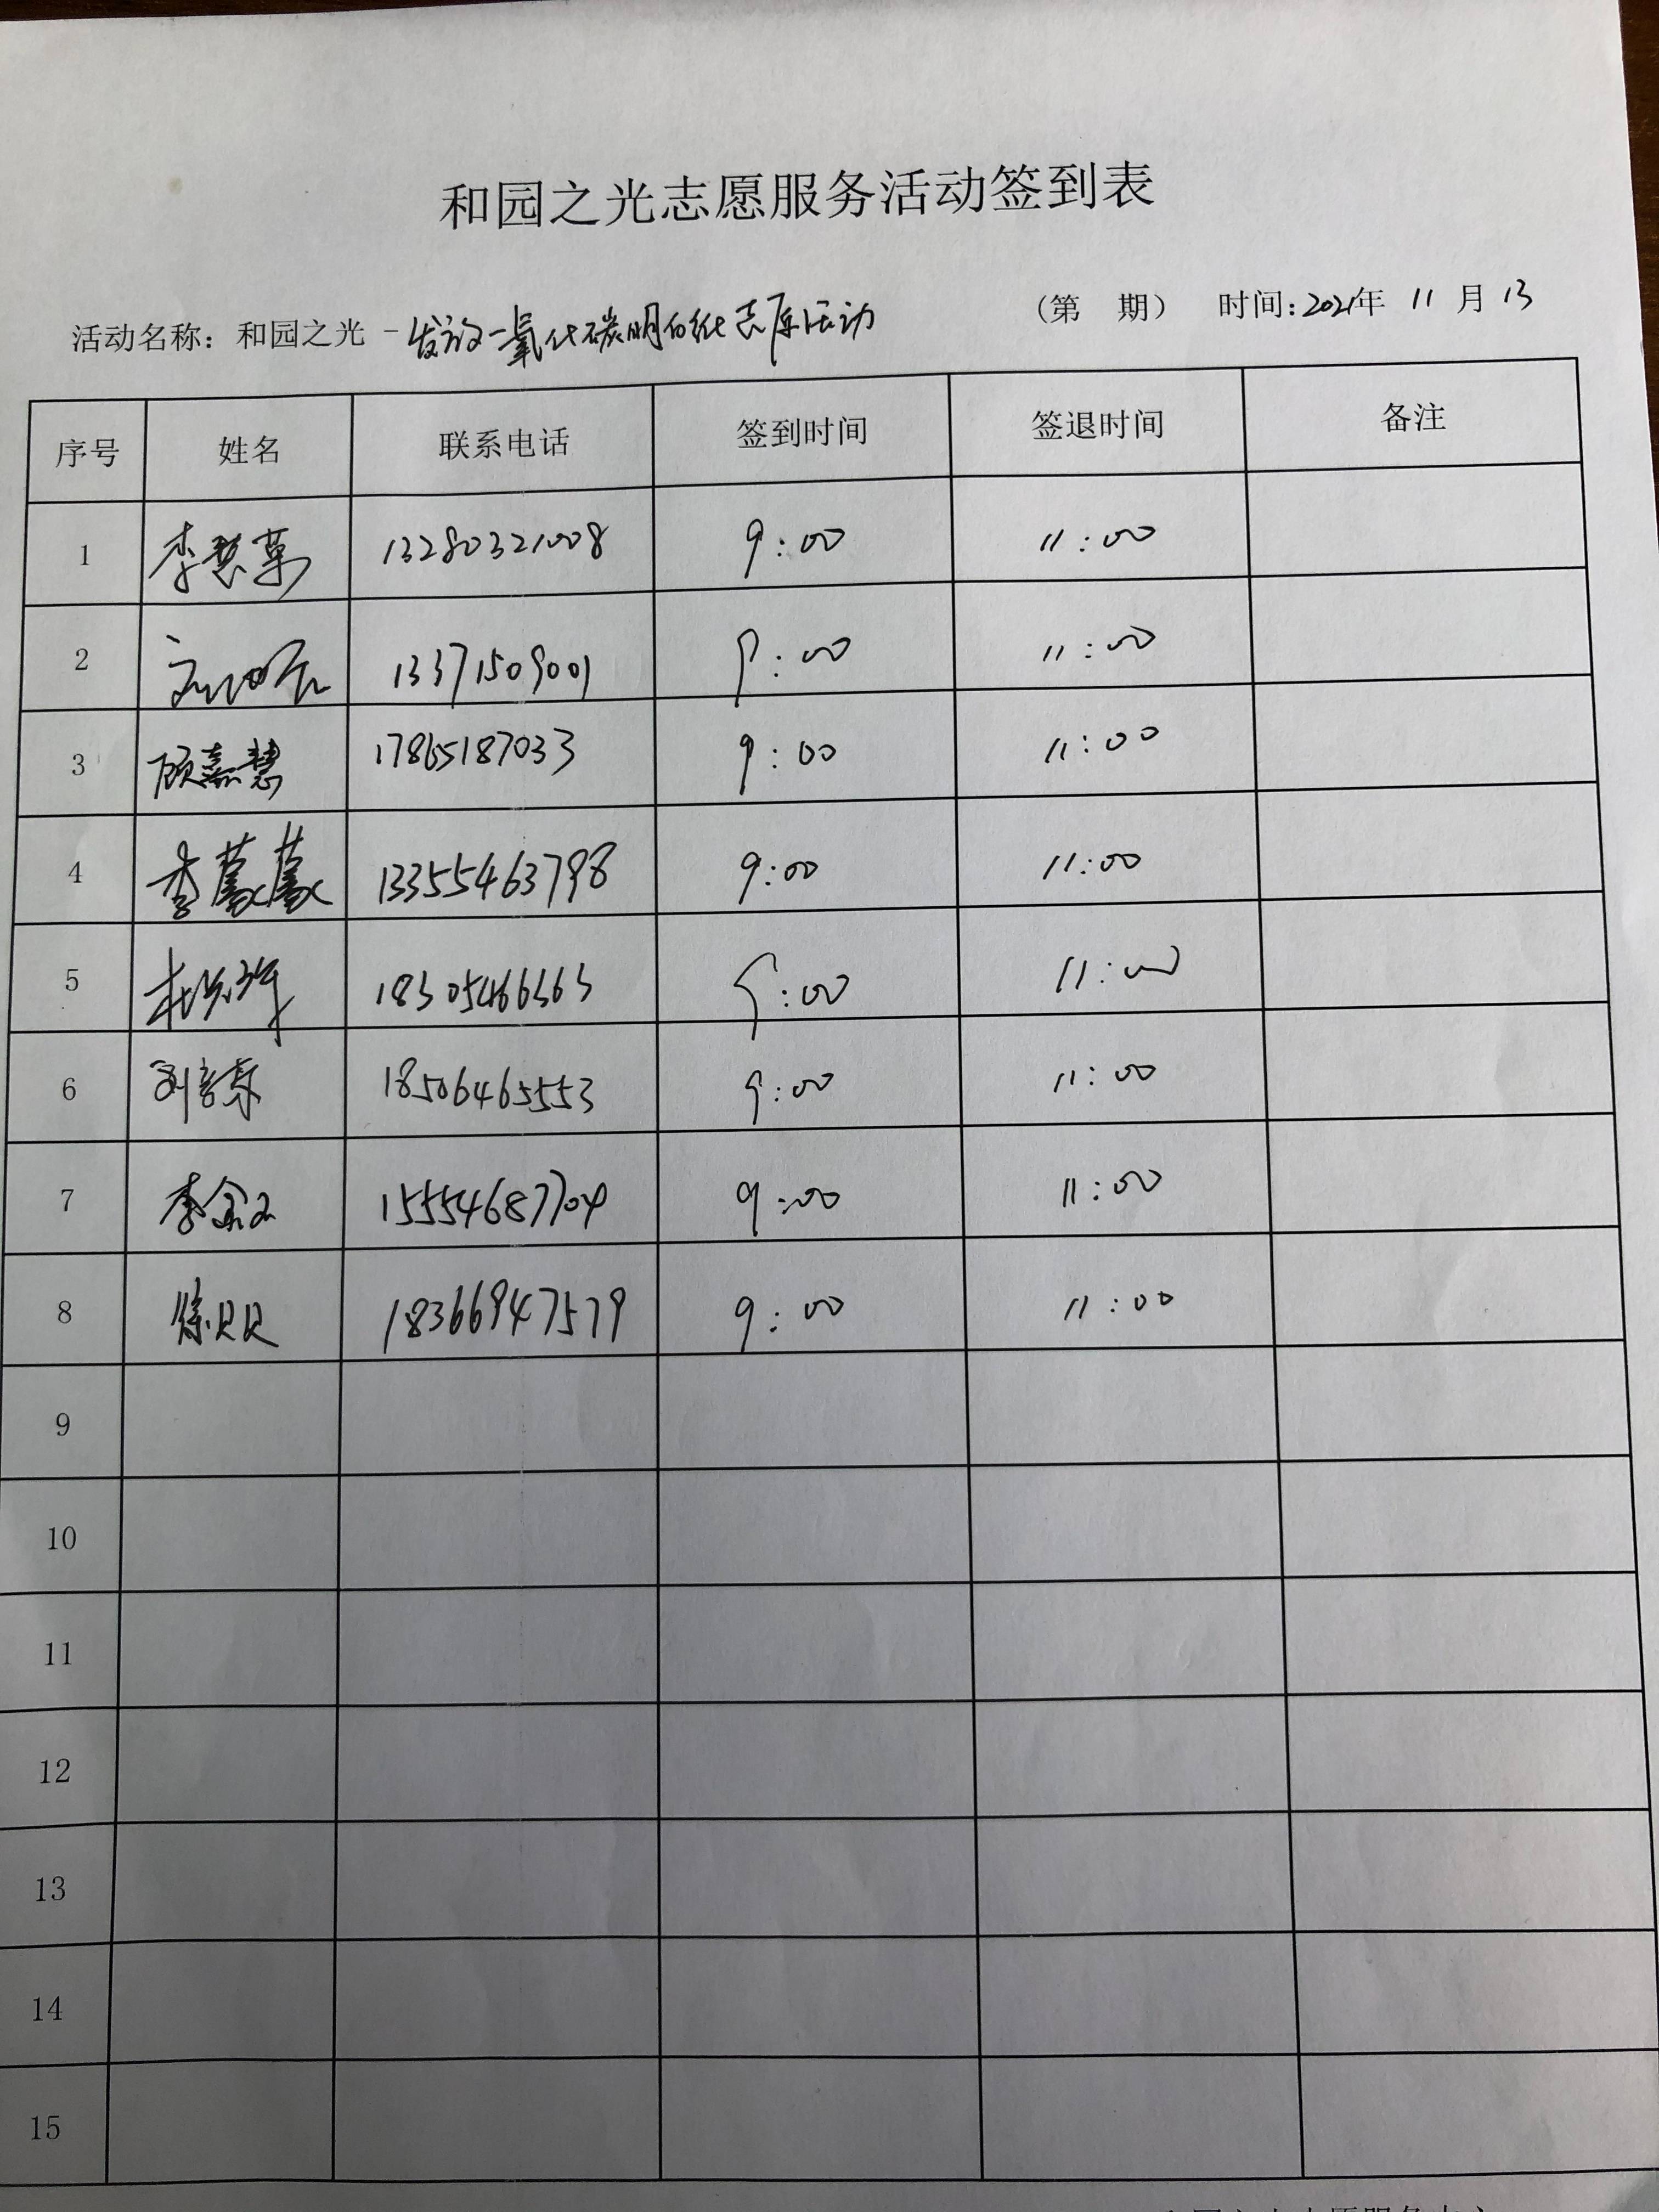 和园之光志愿服务活动签到表
活动名称：和园之光-发放一氧化碳明白纸志愿活动 （第 期） 时间：2021年 11 月 13
序号 姓名 联系电话 签到时间 签退时间 备注
1 李慧 13280321008 9:00 11:00
2 13371509001 9:00 11:00
3 顾嘉慧 17865187033 9:00 11:00
4 李蒙蒙 13355463798 9:00 11:00
5 杜 18305466363 9:00 11:00
6 刘 18506465553 9:00 11:00
7 李 15554687704 9:00 11:00
8 徐贝贝 18366947579 9:00 11:00
9
10
11
12
13
14
15